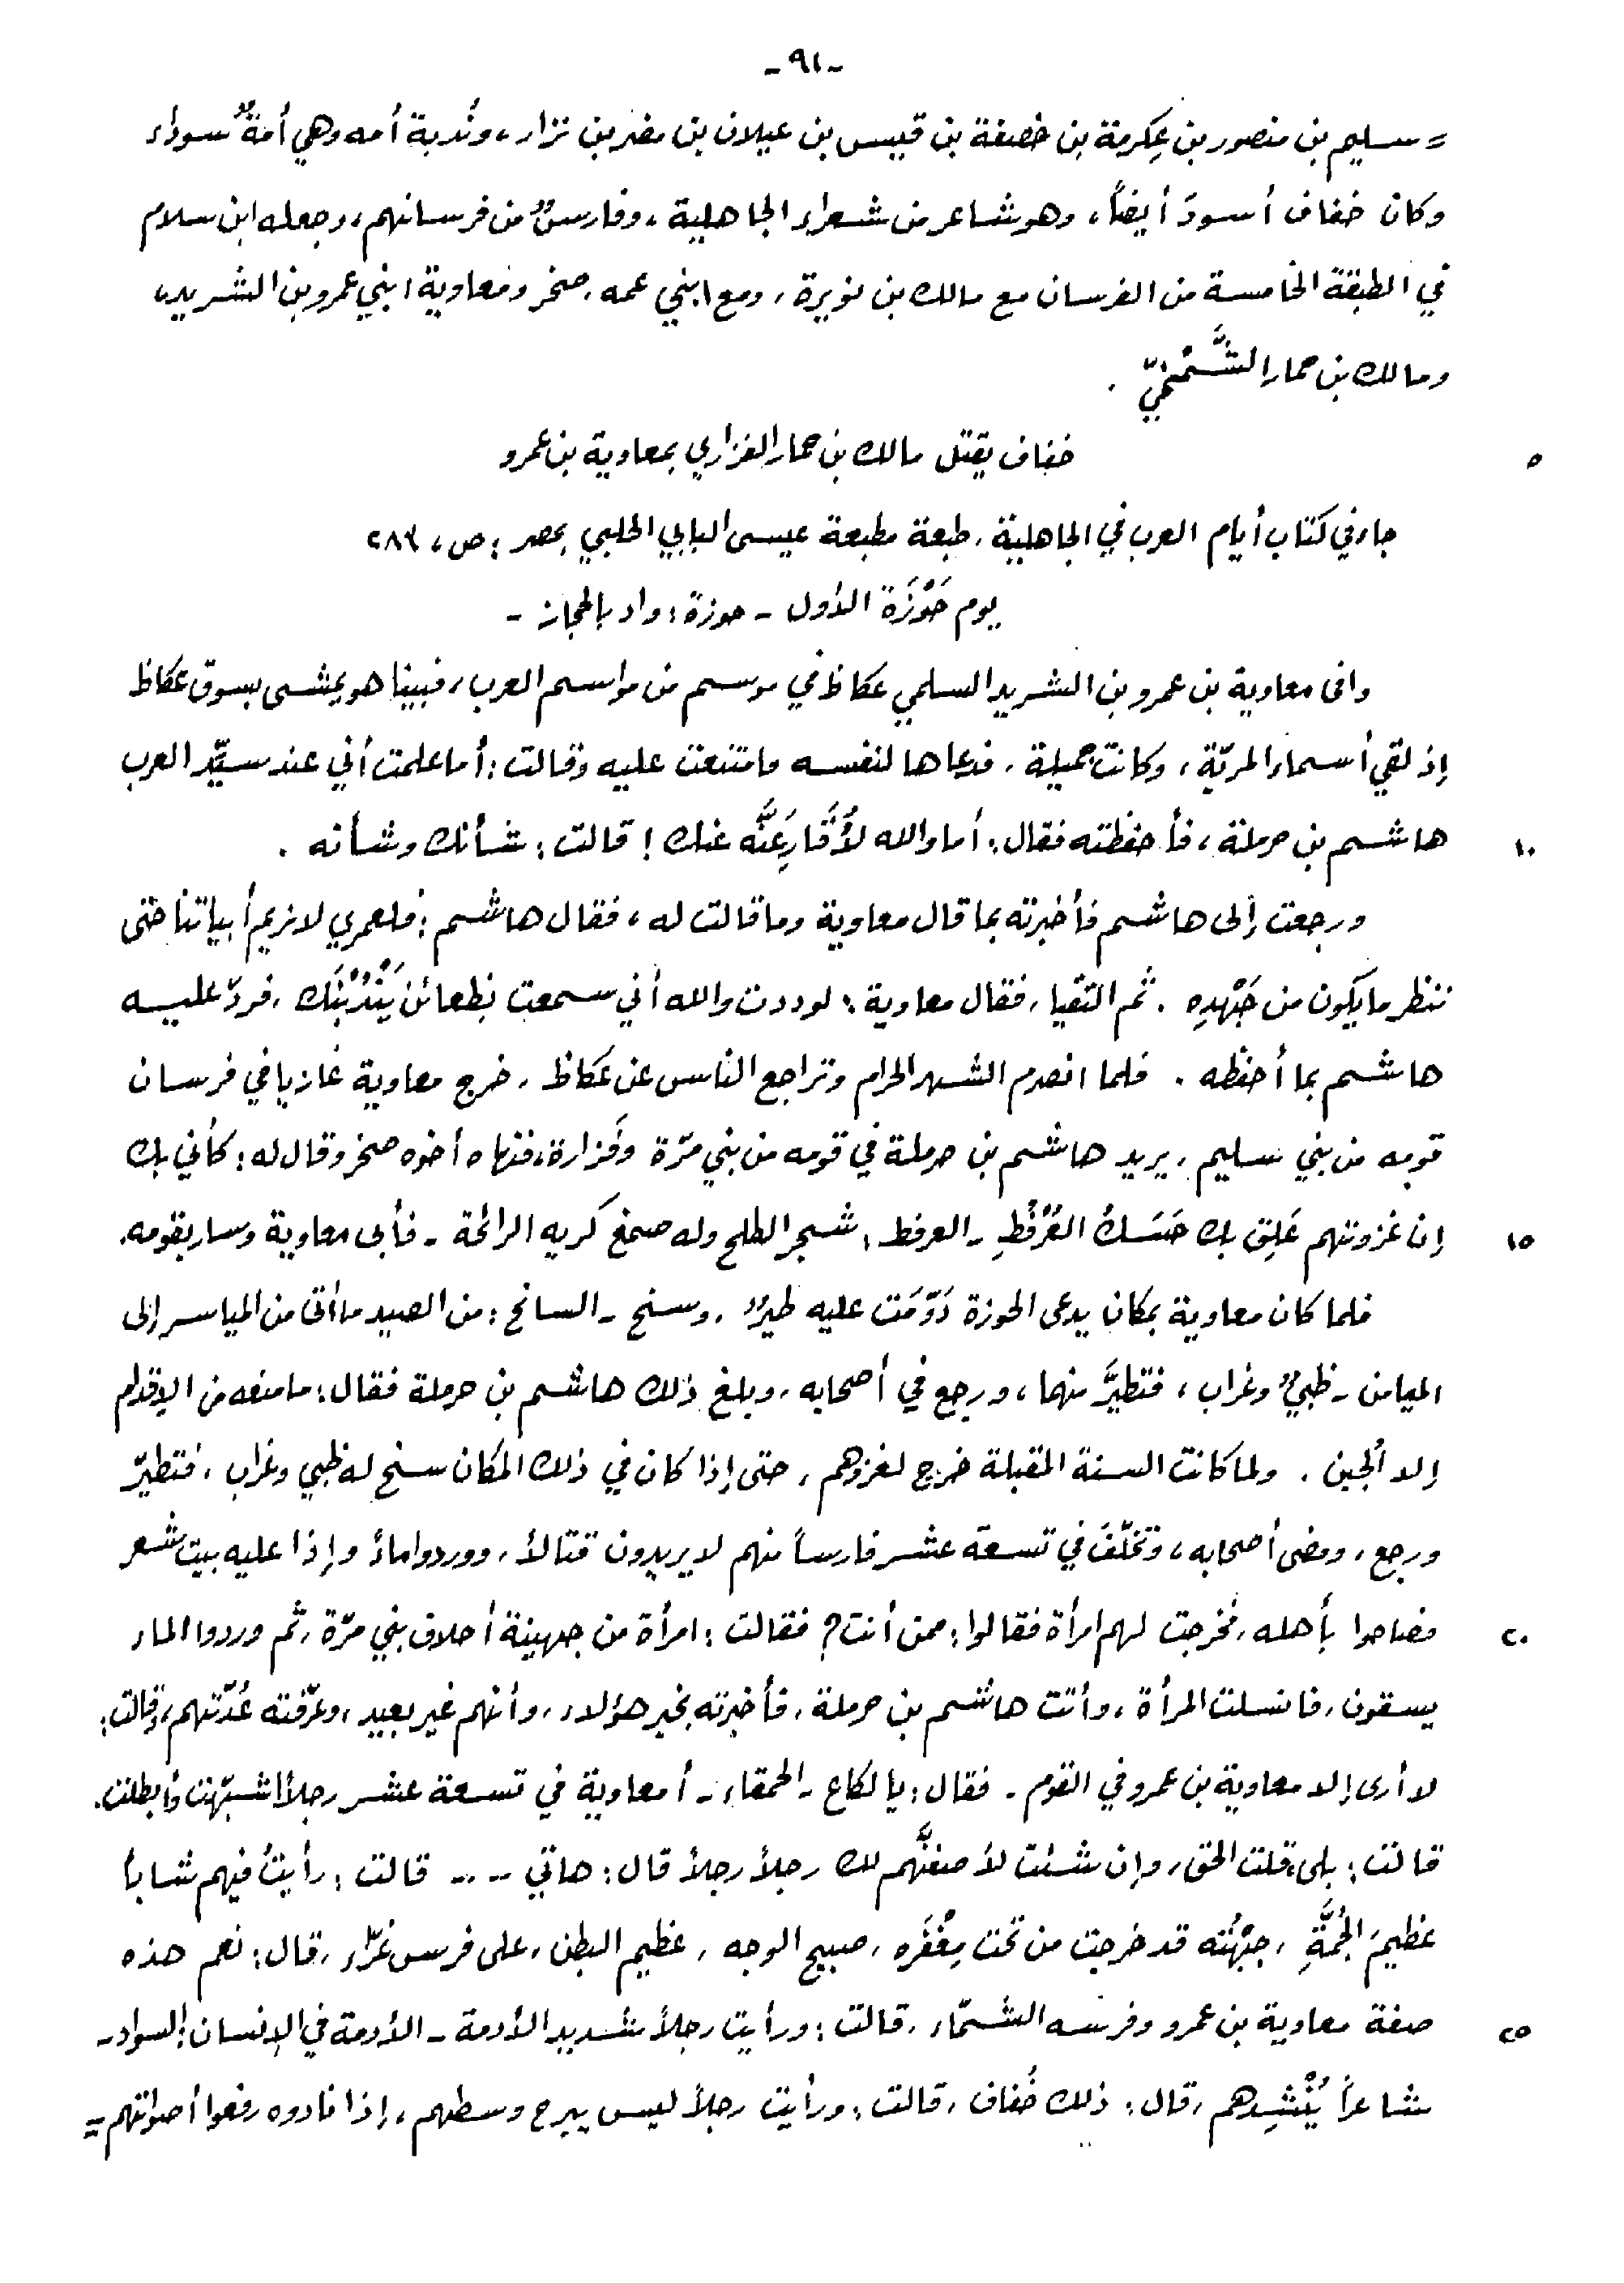 - ٩١ -
= سليم بن منصور بن عِكرمة بن خصفة بن قيس بن عيلان بن مضر بن نزار، وندبة أمه وهي أمةٌ سوداء
وكان خفاف أسودَ أيضاً، وهو شاعر من شعراء الجاهلية، وفارسٌ من فرسانهم، وجعله ابن سلام
في الطبقة الخامسة من الفرسان مع مالك بن نويرة، ومع ابني عمه، صخر ومعاوية ابني عمرو بن الشريد،
ومالك بن حمار الشَّمْخيّ.
خفاف يقتل مالك بن حمار الفزاري بمعاوية بن عمرو
٥
جاء في كتاب أيام العرب في الجاهلية، طبعة مطبعة عيسى البابي الحلبي بمصر: ص، ٢٨٦
يوم حَوْزَة الأول - حوزة: واد بالحجاز -
وافى معاوية بن عمرو بن الشريد السلمي عكاظ في موسم من مواسم العرب، فبينا هو يمشى بسوق عكاظ
إذ لقي أسماء المريّة، وكانت جميلة، فدعاها لنفسه فامتنعت عليه وقالت: أما علمت أني عند سيّد العرب
هاشم بن حرملة، فأحفظته فقال: أما والله لأُقَارِعَنَّه عنك! قالت: شأنك وشأنه.
١٠
ورجعت إلى هاشم فأخبرته بما قال معاوية وما قالت له، فقال هاشم: فلعمري لا نريم أبياتنا حتى
ننظر ما يكون من جَهْدِه. ثم التقيا، فقال معاوية: لوددت والله أني سمعت بظعائن يَنْدُبْنَك، فردّ عليه
هاشم بما أحفظه. فلما انصرم الشهر الحرام وتراجع الناس عن عكاظ، خرج معاوية غازيا في فرسان
قومه من بني سليم، يريد هاشم بن حرملة في قومه من بني مرّة وفزارة، فنهاه أخوه صخر وقال له: كأني بك
إن غزوتهم عَلِق بك حَسَك العُرْفُطِ - العرفط: شجر الطلح وله صمغ كريه الرائحة - فأبى معاوية وسار بقومه.
١٥
فلما كان معاوية بمكان يدعى الحوزة دَوّمَت عليه طيرٌ، وسنح - السانح: من الصيد ما أتى من المياسر إلى
الميامن - ظبيٌ وغراب، فتطيَّر منهما، ورجع في أصحابه، وبلغ ذلك هاشم بن حرملة فقال: ما منعه من الإقدام
إلا الجبن. ولما كانت السنة المقبلة خرج لغزوهم، حتى إذا كان في ذلك المكان سنح له ظبي وغراب، فتطيّر
ورجع، ومضى أصحابه، وتخلّفَ في تسعة عشر فارساً منهم لا يريدون قتالاً، ووردوا ماءً وإذا عليه بيت شعر
فصاحوا بأهله، فخرجت لهم امرأة فقالوا: ممن أنت؟ فقالت: امرأة من جهينة أحلاف بني مرّة، ثم وردوا الماء
٢٠
يسقون، فانسلت المرأة، وأتت هاشم بن حرملة، فأخبرته بخبر هؤلاء، وأنهم غير بعيد، وعرّفته عُدّتهم، وقالت:
لا أرى إلا معاوية بن عمرو في القوم. فقال: يالكاع - الحمقاء - أمعاوية في تسعة عشر رجلاً! شبّهت وأبطلت.
قالت: بلى، قلت الحق، وإن شئت لأصفنَّهم لك رجلاً رجلاً قال: هاتي .... قالت: رأيتُ فيهم شاباً
عظيمَ الجُمَّةِ، جبْهَته قد خرجت من تحت مِغْفَره، صبيح الوجه، عظيم البطن، على فرس غرّاء، قال: نعم هذه
صفة معاوية بن عمرو وفرسه الشمّاء، قالت: ورأيت رجلاً شديد الأدمة - الأدمة في الإنسان: السواد -
٢٥
شاعراً يُنْشِدهم، قال: ذلك خُفاف، قالت: ورأيت رجلاً ليس يبرح وسطهم، إذا نادوه رفعوا أصواتهم =